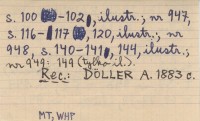 s. 100 -102, ilustr.; nr 947,
s. 116-117, 120, ilustr.; nr
948, s. 140-141, 144, ilustr.;
nr 949: 149 (tylko il.).
Rec.: DÖLLER A. 1883 c.
MT, WHP